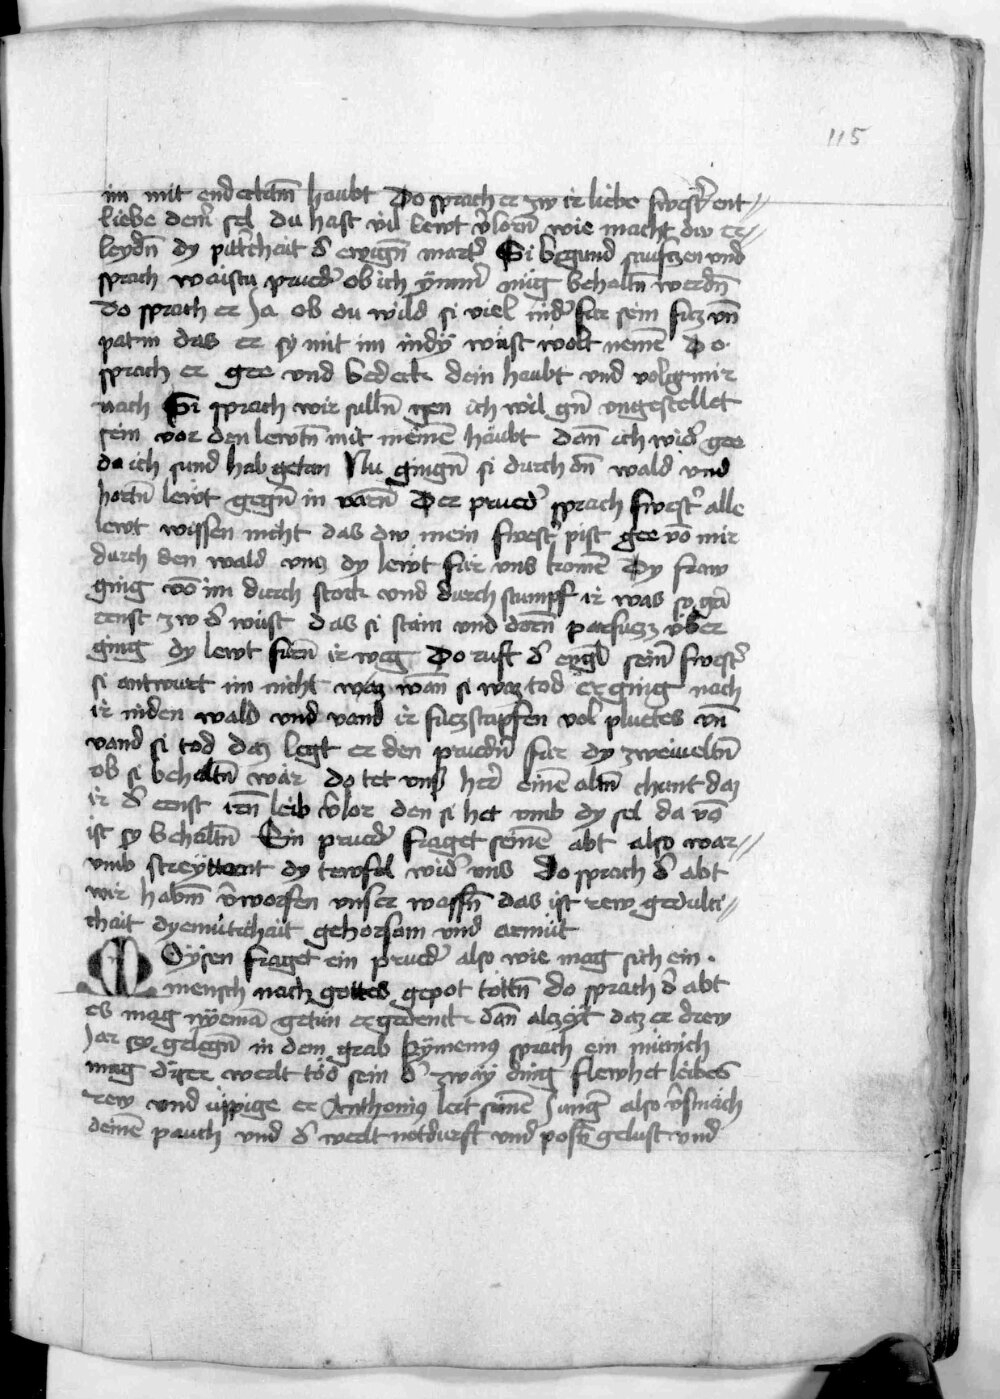 115
im mit endecktem haubt Do sprach er zw ir liebe swest̄ ent //
liebe dein sel du hast vil lewt v̄lorn̄ wie macht dw er //
leydn̄ dy pitt̄chait d̄ ewign̄ mart̄ Si begund seufczen vnd
sprach waistu prued̄ ob ich ÿmm̄ müg behaltn̄ werdn̄
Do sprach er Ja ob du wild si viel nid̄ fur sein fuz vn̄
pat in das er sy mit im in dÿ wüst wolt nemē Do
sprach er gee vnd bedeck dein haubt vnd volg mir
nach Si sprach wir sulln̄ gen ich wil gn̄ vngestellet
sein vor den lewtn̄ mit meinē haubt dan̄ ich wid̄ gee
da ich sund hab getan Nu gingn̄ si durch dn̄ wald vnd
hortn̄ lewt gegn̄ in varn̄ Der prued̄ sprach swest̄ alle
lewt wissen nicht das dw mein swest̄ pist gee vō mir
durch den wald vncz dy lewt für vns komē Dy fraw
ging vō im durch stock vnd durch stumpf ir was so gā
ernst zw d̄ wüst das si stain vnd dorn̄ parfuzz vber
ging dy lewt furn̄ ir weg Do ruft d̄ seinē swest̄
si antwurt im nicht waz wan̄ si waz tod er ging nach
ir in den wald vnd vand ir fuezstapfen vol pluetes vn̄
vand si tod daz legt er den pruedn̄ fur dy zweiueltn̄
ob si behaltn̄ wär do tet vns̄ her̄ einē altn̄ chunt daz
ir d̄ ernst irn̄ leib v̄lor den si het vmb dy sel da vō
ist sy behaltn̄ Ein prued̄ fraget seinē abt also war //
vmb streyttent dy tewfel wid̄ vns Do sprach d̄ abt
wir habm̄ v̄worfen vnser waffn̄ das ist rew gedulti //
chait dyemutichait gehorsam vnd armüt
Moÿsen fraget ein prued̄ also wie mag sich ein
mensch nach gottes gepot töttn̄ do sprach d̄ abt
es mag nÿemā getun er gedenck dan̄ alczeit daz er drew
Jar sey gelegn̄ in dem grab sprach ein münich
mag diser werlt töd sein d̄ zway ding flewhet leibes
rew vnd üppige er Anthonius lert seinē Junḡ also v̄smäch
deinē pauch vnd d̄ werlt notdurft vnd pos̄ gelust vnd